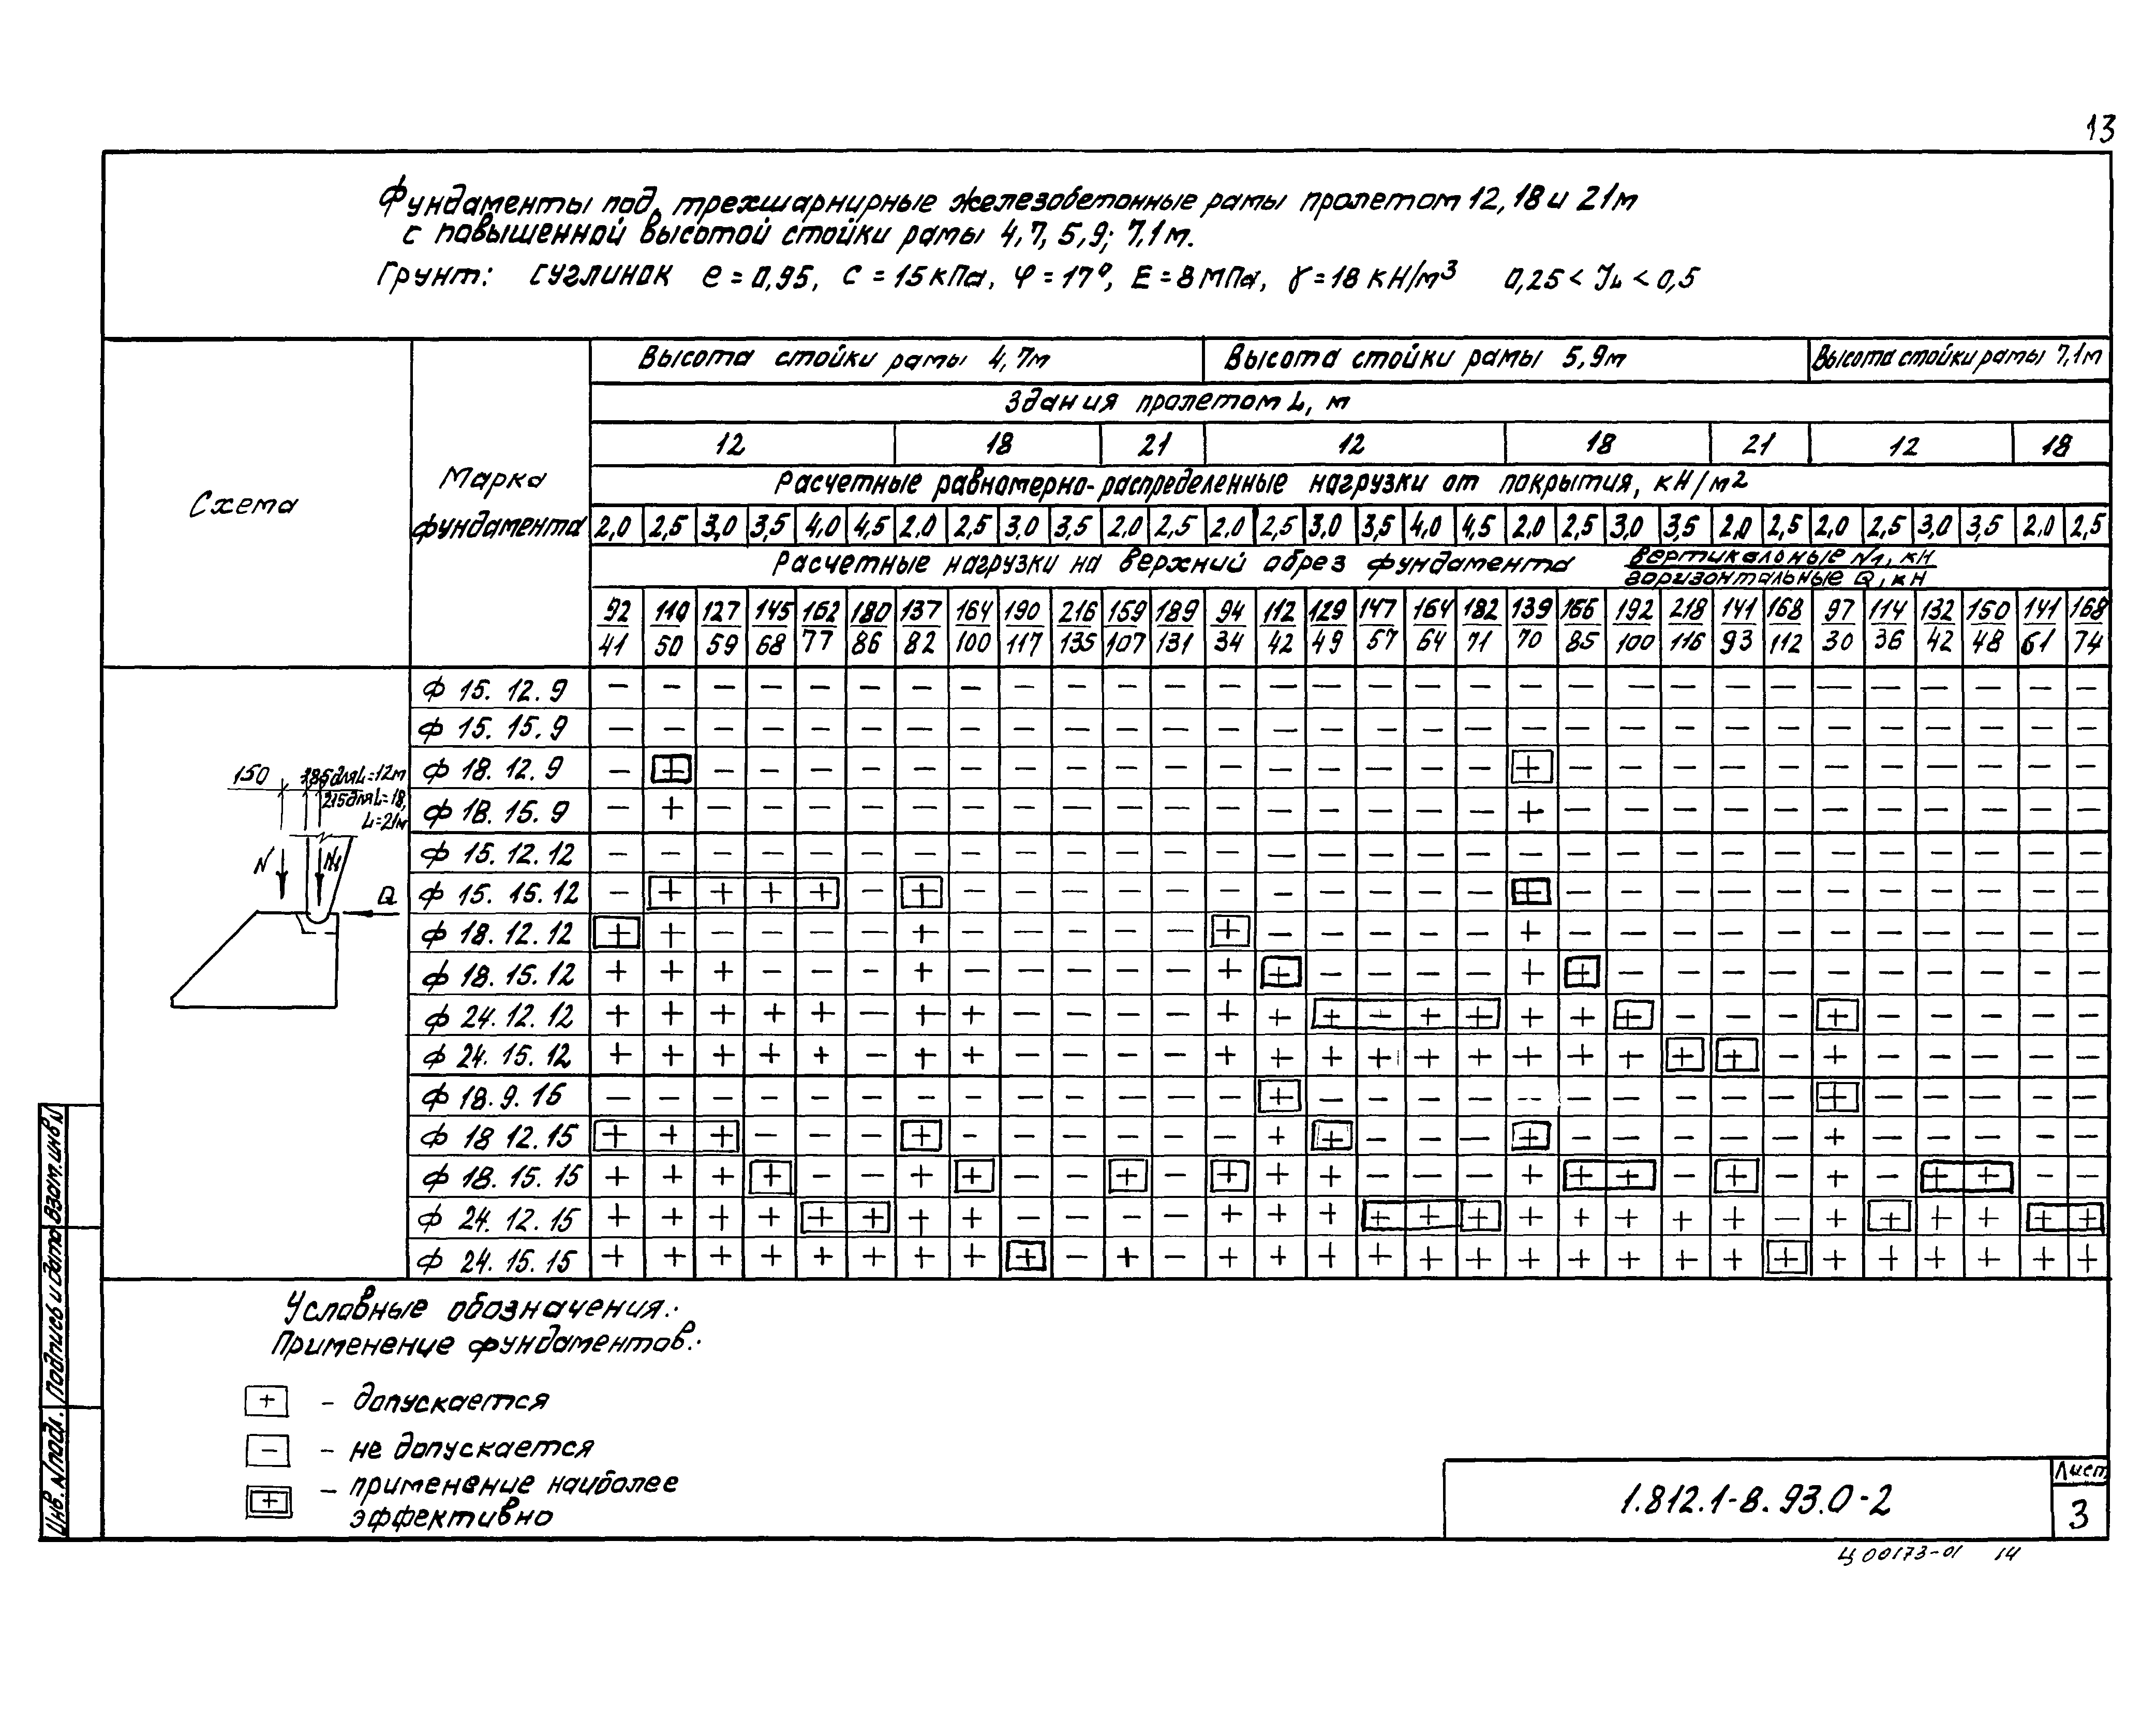 13
Фундаменты под трехшарнирные железобетонные рамы пролетом 12, 18 и 21м
с повышенной высотой стойки рамы 4,7, 5,9; 7,1м.
Грунт: суглинок e = 0,95, c = 15 кПа, φ = 17°, E = 8 МПа, γ = 18 кН/м³ 0,25 < JL < 0,5
Схема
Марка фундамента
Высота стойки рамы 4,7м Высота стойки рамы 5,9м Высота стойки рамы 7,1м
Здания пролетом L, м
12 18 21 12 18 21 12 18
Расчетные равномерно-распределенные нагрузки от покрытия, кН/м2
2,0 2,5 3,0 3,5 4,0 4,5 2,0 2,5 3,0 3,5 2,0 2,5 2,0 2,5 3,0 3,5 4,0 4,5 2,0 2,5 3,0 3,5 2,0 2,5 2,0 2,5 3,0 3,5 2,0 2,5
Расчетные нагрузки на верхний обрез фундамента вертикальные N1, кН
горизонтальные Q, кН
92 110 127 145 162 180 137 164 190 216 159 189 94 112 129 147 164 182 139 166 192 218 141 168 97 114 132 150 141 168
41 50 59 68 77 86 82 100 117 135 107 131 34 42 49 57 64 71 70 85 100 116 93 112 30 36 42 48 61 74
Ф 15. 12. 9 – – – – – – – – – – – – – – – – – – – – – – – – – – – – – –
Ф 15. 15. 9 – – – – – – – – – – – – – – – – – – – – – – – – – – – – – –
Ф 18. 12. 9 – + – – – – – – – – – – – – – – – – + – – – – – – – – – – –
Ф 18. 15. 9 – + – – – – – – – – – – – – – – – – + – – – – – – – – – – –
Ф 15. 12. 12 – – – – – – – – – – – – – – – – – – – – – – – – – – – – – –
Ф 15. 15. 12 – + + + + – + – – – – – – – – – – – + – – – – – – – – – – –
Ф 18. 12. 12 + + – – – – + – – – – – + – – – – – + – – – – – – – – – – –
Ф 18. 15. 12 + + + – – – + – – – – – + + – – – – + + – – – – – – – – – –
Ф 24. 12. 12 + + + + + – + + – – – – + + + – + + + + + – – – + – – – – –
Ф 24. 15. 12 + + + + + – + + – – – – + + + + + + + + + + + – + – – – – –
Ф 18. 9. 15 – – – – – – – – – – – – – + – – – – – – – – – – + – – – – –
Ф 18 12. 15 + + + – – – + – – – – – – + + – – – + – – – – – + – – – – –
Ф 18. 15. 15 + + + + – – + + – – + – + + + – – – + + + – + – + – + + – –
Ф 24. 12. 15 + + + + + + + + – – – – + + + + + + + + + + + – + + + + + +
Ф 24. 15. 15 + + + + + + + + + – + – + + + + + + + + + + + + + + + + + +
150 185 для L=12м
215 для L=18,
L=21м
N N1
Q
Условные обозначения:
Применение фундаментов:
+ – допускается
– – не допускается
+ – применение наиболее
эффективно
Инв. N подл. Подпись и дата Взам. инв. N
1.812.1-8. 93.0-2
Лист
3
Ц 00173-01 14